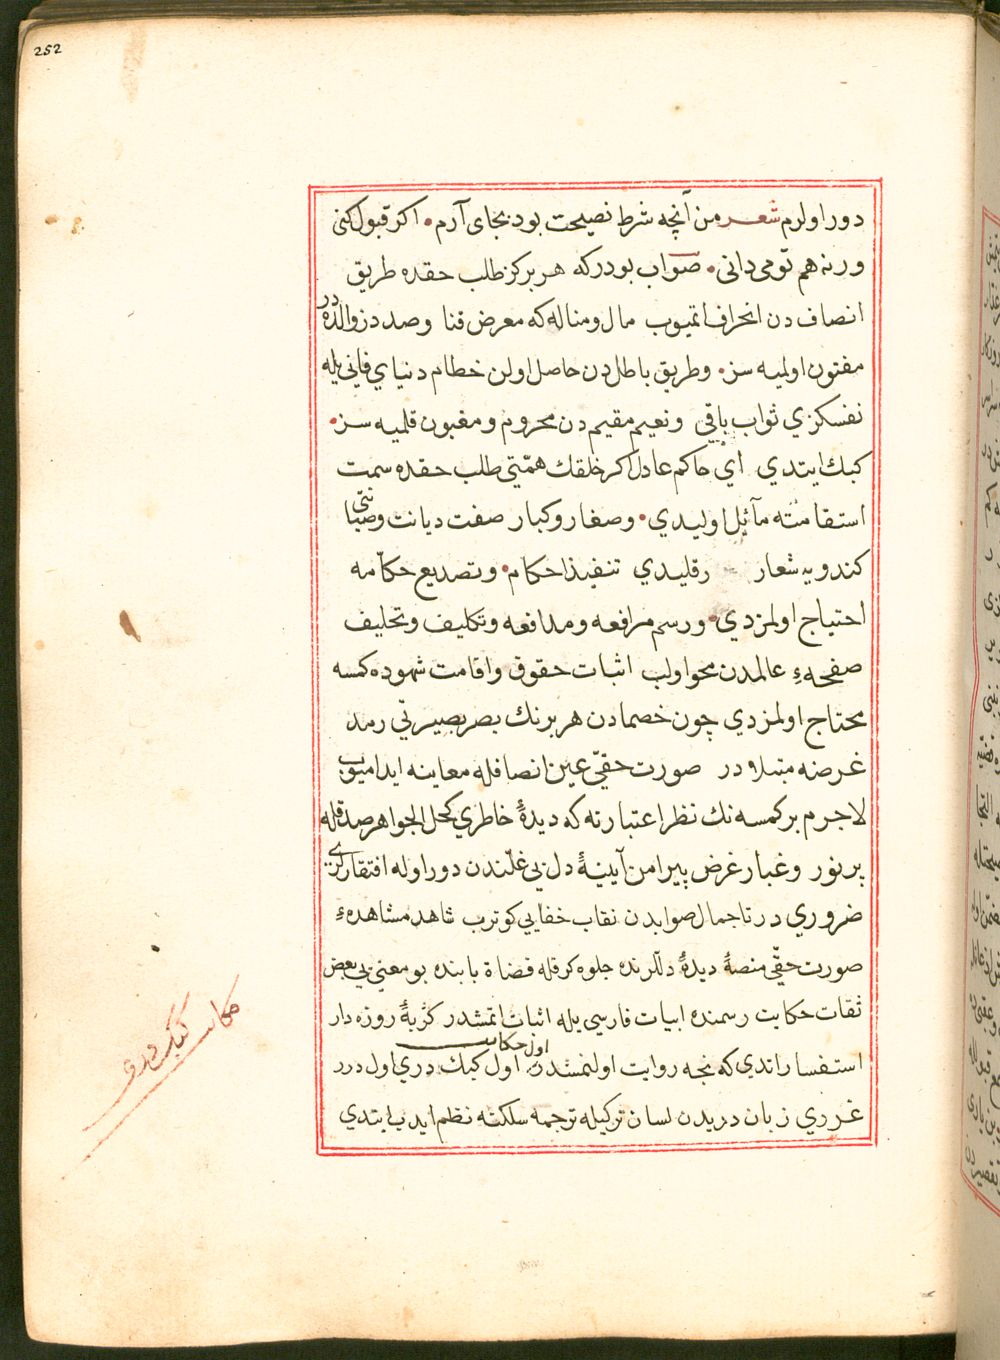 252
دور اولرم شعر من آنچه شرط نصیحت بود بجای آرم ۰ اكر قبول كنی
ورنه هم تو می دانی ۰ صواب بودركه هر بركز طلب حقده طریق
انصاف دن انحراف اتمیوب مال و مناله كه معرض فنا و صدد زوالده در
مفتون اولمیه سز ۰ و طریق باطل دن حاصل اولن خطام دنیای فانی یله
نفسكزی ثواب باقی و نعیم مقیم دن محروم و مغبون قلمیه سز ۰
كبك ایتدی ای حاكم عادل اكر خلقك همتی طلب حقده سمت
استقامته مآئل اولیدی ۰ و صغار و كبار صفت دیانت و صیانتی
كندویه شعار قلیدی تنفیذ احكام ۰ و تصدیع حكامه
احتیاج اولمزدی ۰ و رسم مرافعه و مدافعه و تكلیف و تحلیف
صفحهٔ عالمدن محو اولب اثبات حقوق و اقامت شهوده كمسه
محتاج اولمزدی چون خصمادن هر برنك بصر بصیرتی رمد
غرضه مبتلا در صورت حقی عین انصافله معاینه ایدامیوب
لاجرم بر كمسه نك نظر اعتبارنه كه دیدهٔ خاطری كحل الجواهر صدقله
پر نور و غبار غرض پیرامن آیینهٔ دل بی غلّندن دور اوله افتقارلری
ضروری در تا جمال صوابدن نقاب خفایی كوترب شاهد مشاهدهء
صورت حقی منصهٔ دیدهٔ دللرنده جلوه كر قله قضاة بابنده بو معنی یی بعض
ثقات حكایت رسمنده ابیات فارسی یله اثبات اتمشدر كربهٔ روزه دار
استفسار اتدی كه نجه روایت اولنمشدر اول حكایت اول كبك دری اول درر
غرری زبان دریدن لسان تركیله ترجمه سلكنه نظم ایدب ایتدی
حكایت كبك دری